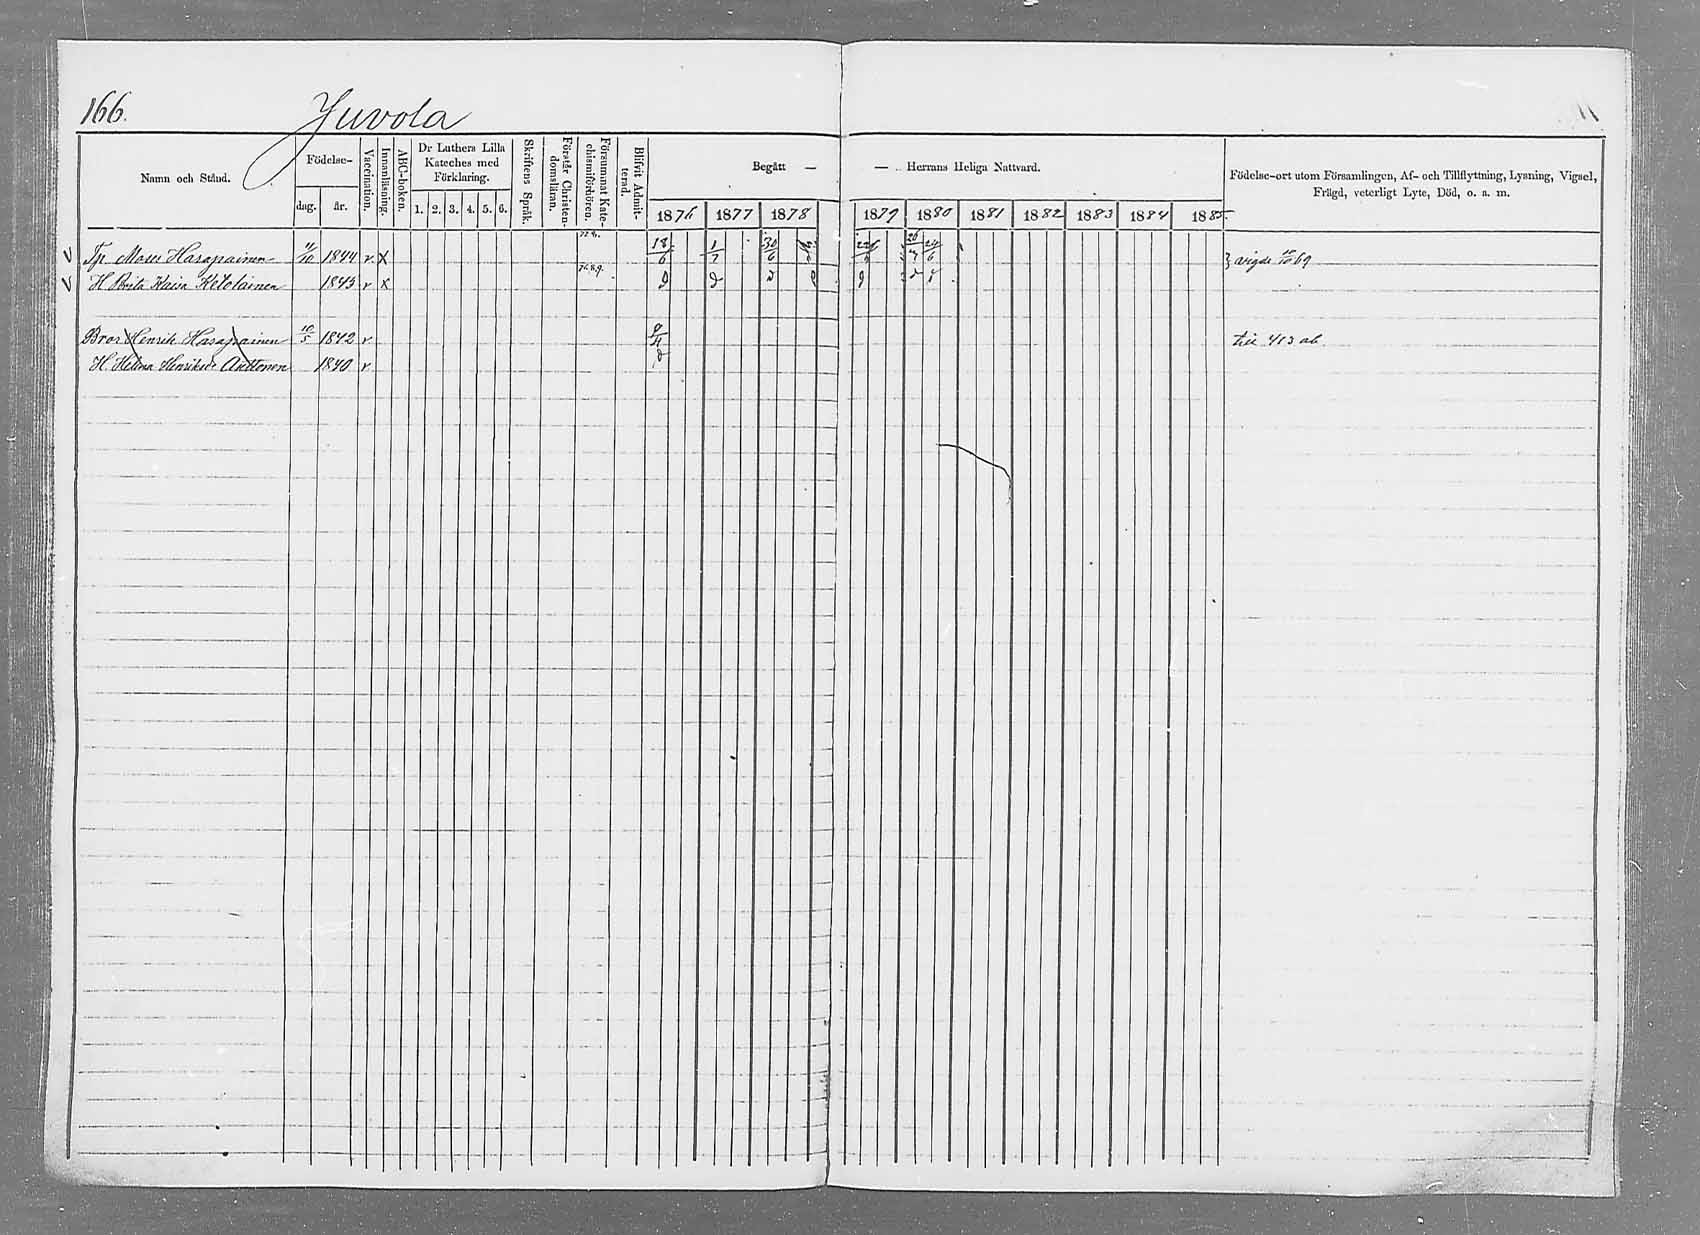 166. Juvola
Namn och Stånd.
Födelse-
dag. år.
Vaccination.
Innanläsning.
ABC-boken.
Dr Luthers Lilla
Kateches med
Förklaring.
1. 2. 3. 4. 5. 6.
Skriftens Språk.
Förstår Christen-
domsläran.
Försummat Kate-
chismiförhören.
Blifvit Admit-
terad.
Begått — — Herrans Heliga Nattvard.
1876 1877 1878 1879 1880 1881 1882 1883 1884 1885
Födelse-ort utom Församlingen, Af- och Tillflyttning, Lysning, Vigsel,
Frägd, veterligt Lyte, Död, o. a. m.
Tp. Moses Hasapainen 11/10 1844 v x 18/6 1/7 30/6 26/7 24/6 } vigde 10/10 69
H. Brita Kaisa Ketolainen 1843 v x
Bror Henrik Hasapainen 10/5 1842 v 9/4 till 413 ab
H. Helena Henriksdr Anttonen 1840 v